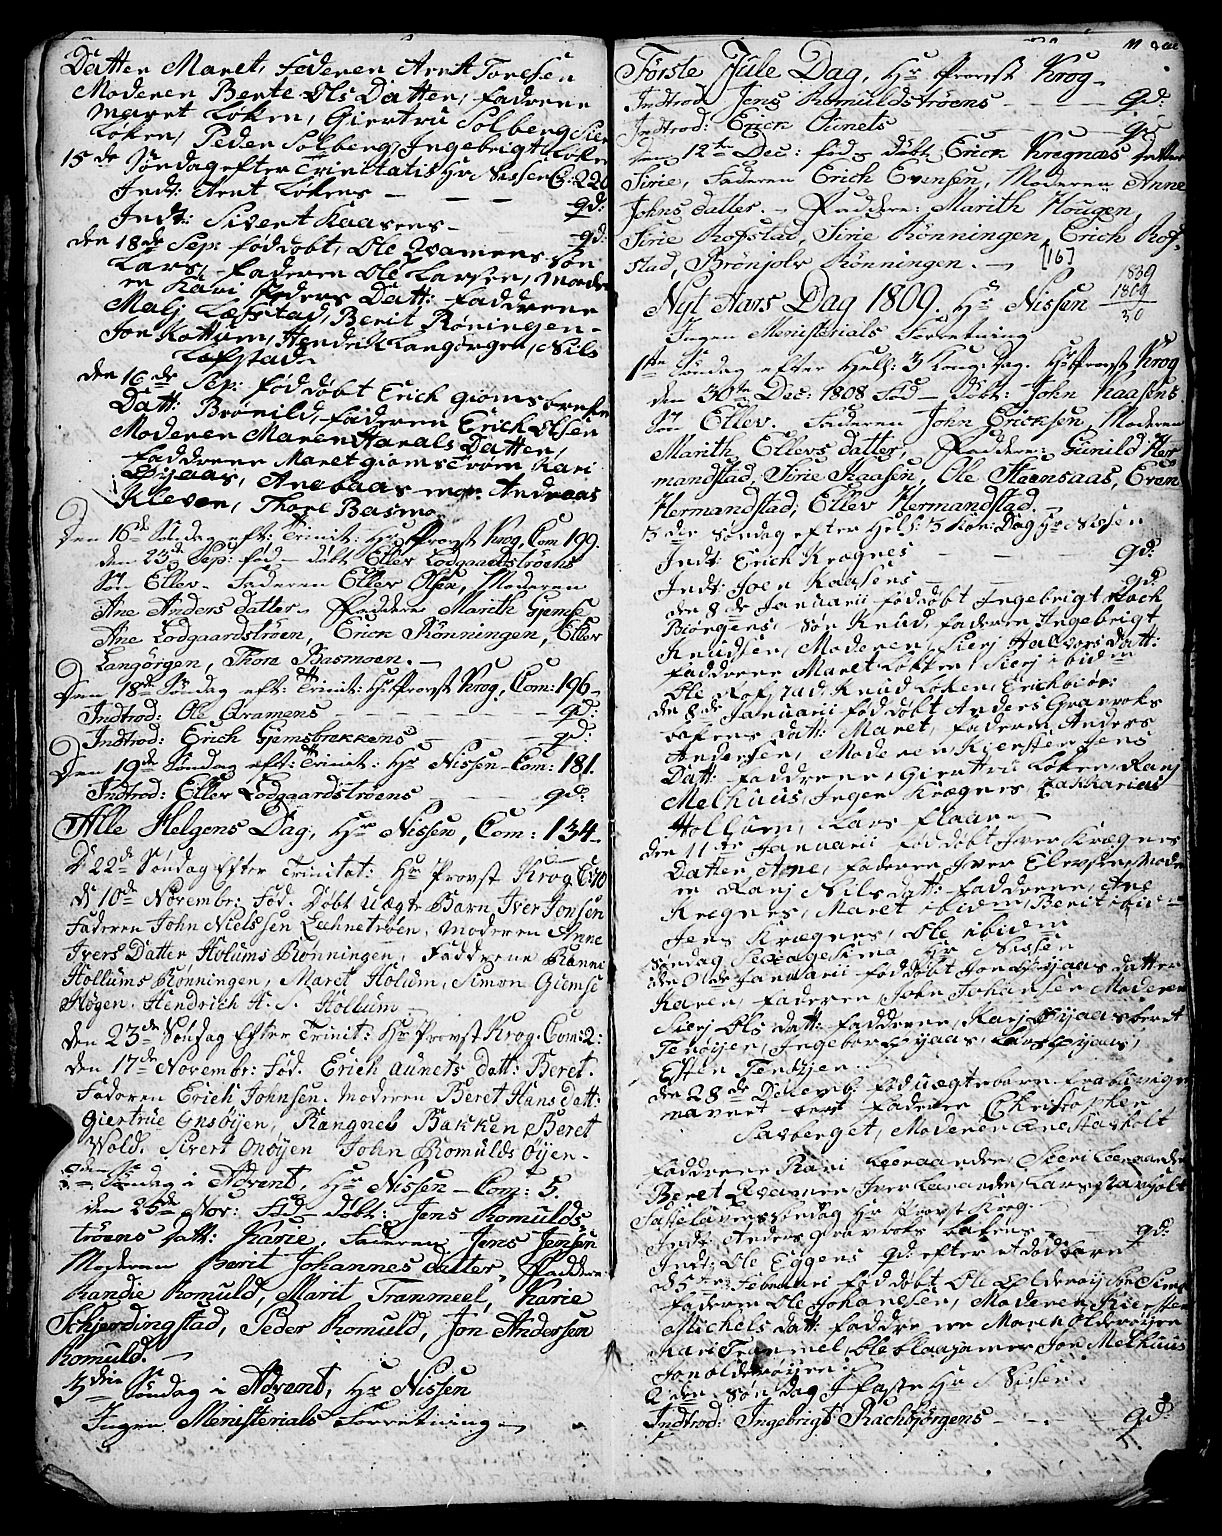 Datter Maret, Faderen Arnt Toresen
Moderen Berte Ols Datter, Faddrene
Maret Løken, Giertru Solberg, Siri
Løken, Peder Solberg, Ingebrigt Løken
15de Søndag efter Trinitatis Hr Nissen C: 220
Indt: Arnt Løkens — — — qd:
Indt: Sivert Kaasens — qd:
den 18de Sep: fød døbt, Ole Qvamens Søn
Lars, Faderen Ole Larsen, Moder
en Kari Peders Datt: Faddrene
Malj Løfstad, Berit Røningen
Jon Kottum, Hendrik Langørgen, Nils
Løfstad
den 16de Sep: fød døbt Erich Giomsbrek
Datt: Brønild, Faderen Erich Olsen
Moderen Maren Haralds Datter,
Faddrene Maret Giomstrøen Kari
Øyaas, Ane Baas mor Andreas
Kleven, Thore Basmo
Den 16de Søndag eft: Trinit: Hr Provst Krog, Com 199.
den 23de Sep: fød — døbt Ellev Lodgaardstrøens
Søn Ellev. Faderen Ellev Olsen, Moderen
Ane Anders datter. Faddere Marith Gjemse
Ane Lodgaardstrøen, Erick Rønningen, Ellev
Langørgen, Thore Basmoen. —
Den 18de Søndag eft: Trinit: Hr Provst Krog, Com: 196
Indtrod: Ole Qvamens — — — qd:
Indtrod: Erich Gjemsbrekkens — — qd:
Den 19de Søndag eft: Trinit: Hr Nissen Com: 181.
Indtrod: Ellev Lodgaardstrøens — — qd:
Alle Helgens Dag, Hr Nissen, Com: 134
D: 22de Søndag Efter Trinitat: Hr Provst Krog C:
d: 10de Novembr: Fød. Døbt Uægte Barn Iver Jonsen
Faderen John Nielssen Lechnetrøen, Moderen Anne
Ivers Datter Hollums Rønningen, Faddrene Ranni
Hollums Rønningen, Maret Hollum, Simon Giemse
Høgen. Hendrich H. S. Hollum
den 23de Søndag Efter Trinit: Hr Provst Krog. Com: 2:
den 17de Novembr: Fød. Erich Aunets Datt: Beret.
Faderen Erich Johnsen. Moderen Beret Hans datt:
Giertrue Onsøyen, Rangnel Bakken, Beret
Wold. Sivert Onsøyen John Romulds Øyen.
Søndag i Advent, Hr Nissen — Com: 5.
den 25de Nov: Fød — døbt: Jens Romulds
trøens datt: Karie, Faderen Jens Jensen
Moderen Berit Johannesdatter Faddere
Randie Romuld, Marit Trammeel, Karie
Schjerdingstad, Peder Romuld, Jon Andersen
Romuld. —
3die Søndag i Advent, Hr Nissen
Ingen Ministerials Forretning —
Første Jule Dag, Hr Provst Krog —
Indtrod Jens Romuldstrøens — — qd:
Indtrod: Erick Aunets — — qd:
den 12te Dec: fød — døbt Erick Kregnæs datter
Sirie, Faderen Erich Evensen, Moderen Anne
Johns datter. — Faddere: Marith Hougen,
Sirie Rofstad, Sirie Rønningen, Erich Rof-
stad, Brønjolv Rønningen. —
[16]
Nyt Aars Dag 1809. Hr Nissen
1839
1809
30
Ingen Ministerials Forretning
1ste Søndag efter Hell: 3 Kong: Dag. Hr Provst Krog
den 30te Dec: 1808 Fød — Døbt: John Kaasens
Søn Ellev. Faderen John Ericksen, Moderen
Marith Ellevs datter, Faddere: Gunild Her
mandstad, Sirie Kaasen, Ole Haansaas, Even
Hermandstad, Ellev Hermandstad. —
3die Søndag efter Hel: 3 Kon: Dag Hr Nissen
Indt: Erich Kregnes — — — qd:
Indt: Joen Kaasens — — qd:
den 8de Januarii fød døbt Ingebrigt Rach
Biørgens Søn Knud, Faderen Ingebrigt
Knudsen, Moderen Sirj Halvors Datt:
Faddrene Maret Løkken, Sirj ibidm
Ole Rofstad, Knud Løken, Erich
den 8de Januarii fød døbt Anders Gravroks
Datt: Maret, Faderen Anders
Andersen, Moderen Kiersten Jens
Datt: Faddrene Giertru Løken, Ranj
Melhuus, Inger Krægnes, Zakkarias
Hollum, Lars Flaaen
den 11te Januarii fød døbt Iver Kregnes
Datter Ane, Faderen Iver Elevsen, Moder
en Ranj Nilsdatt: Faddrene, Ane
Kregnes, Maret ibidem, Berit ibidem
Jens Krægnes, Ole ibidem
Søndag Sexagesima Hr Nissen
den Januarii fød døbt Jon Øyaas datter
Karen, Faderen John Johansen Moderen
Sirj Ols datt: Faddrene, Ranj Øyaas Beret
Tenøyen, Ingebor Øyaas, Lars Øyaas,
Esten Tenøyen
den 28de Decemb fød uægte barn
navnet Faderen Christopher
Savberget, Moderen Ane Stavholt
Faddrene Kari Leeraanden, Siri Leeraanden
Beret Qvamen, Iver Leeraanden, Lars
Fastelavens Søndag Hr Provst Krog
Indt: Anders Gravroks — — qd:
Indt: Ole Eggens qd: efter et død barn
d: 5te Februari fød døbt Ole Olderøyens
Faderen Ole Johansen, Moderen Kiersten
Michels datt: Faddrene Maret Olderøyen
Kari Trammel, Ole Jon Melhuus
Jon Olderøyen
2den Søndag i Faste Hr Nissen
Indtrod: Ingebrigt Rachbjørgens — — qd: